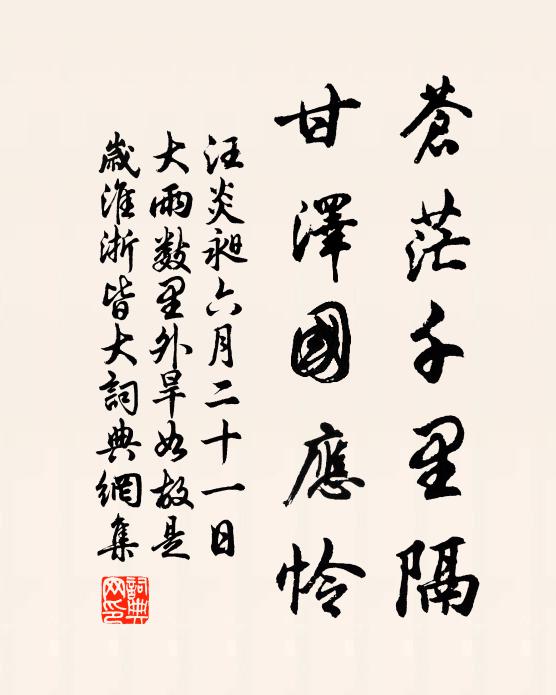 蒼茫千里隔
甘澤國應怜
汪炎昶六月二十一日
大雨数里外旱如故是
歲淮浙皆大詞典網集
詞典
网印